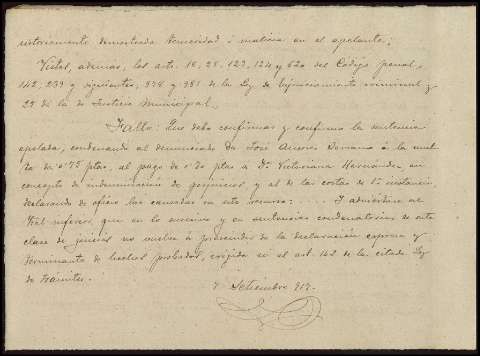 notoriamente demostrada temeridad ó malicia en el apelante;
Vistos, además, los arts. 18, 28, 123, 124 y 620 del Código penal,
142, 239 y siguientes, 978 y 981 de la Ley de Enjuiciamiento criminal y
29 de la de Justicia Municipal.
Fallo: Que debo confirmar y confirmo la sentencia
apelada, condenando al denunciado Dn José á la mul-
ta de 0'75 ptas, al pago de ptas a Dª Victoriana Hernández, en
concepto de indemnización de perjuicios, y al de las costas de 1ª instancia,
declarando de oficio las causadas en este recurso: .... Y adviértase al
Tral inferior que en lo sucesivo y en sentencias condenatorias de esta
clase de juicios no vuelva á prescindir de la declaración expresa y
terminante de hechos probados, exigida en el art. 142 de la citada Ley
de trámites.
7 Setiembre 917.